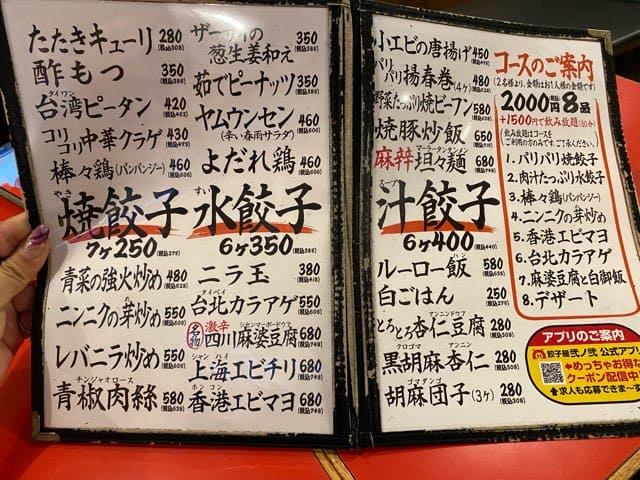 たたきキューリ 280 (税込308)
酢もつ 350 (税込385)
タイワン
台湾ピータン 420 (税込462)
コリコリ中華クラゲ 430 (税込473)
棒々鶏(バンバンジー) 460 (税込506)
ザーサイの葱生姜和え 350 (税込385)
茹でピーナッツ 350 (税込385)
ヤムウンセン 460 (税込506)
(辛い春雨サラダ)
よだれ鶏 460 (税込506)
やき
焼餃子
7ヶ250 (税込275)
すい
水餃子
6ヶ350 (税込385)
青菜の強火炒め 480 (税込528)
ニンニクの芽炒め 550 (税込605)
レバニラ炒め 550 (税込605)
チンジャオロース
青椒肉絲 580 (税込638)
ニラ玉 380 (税込418)
タイペイ
台北カラアゲ 550 (税込605)
名物 激辛 シセンマーボードウフ
四川麻婆豆腐 680 (税込748)
シャンハイ
上海エビチリ 680 (税込748)
ホンコン
香港エビマヨ 680 (税込748)
小エビの唐揚げ 450 (税込495)
パリパリ揚春巻(4ヶ) 480 (税込528)
野菜たっぷり焼ビーフン 580 (税込638)
焼豚炒飯 650
マーラータンタンメン
麻辣坦々麺 680 (税込748)
スープ
汁餃子
6ヶ400 (税込440)
ルーロー飯 580 (税込638)
白ごはん 250 (税込275)
アンニンドウフ
とろとろ杏仁豆腐 280 (税込308)
クロゴマ アンニン
黒胡麻杏仁 280 (税込308)
ゴマダンゴ
胡麻団子(3ヶ) 280 (税込308)
コースのご案内
(2名様より、金額はお1人様の金額です)
2000円 8品
+1500円で飲み放題(90分)
飲み放題はコースを
ご利用の方のみです。ご了承ください。
1.パリパリ焼餃子
2.肉汁たっぷり水餃子
3.棒々鶏(バンバンジー)
4.ニンニクの芽炒め
5.香港エビマヨ
6.台北カラアゲ
7.麻婆豆腐と白御飯
8.デザート
アプリのご案内
餃子屋弐ノ弐 公式アプリ
めっちゃお得な
クーポン配信中
求人も応募できま〜す